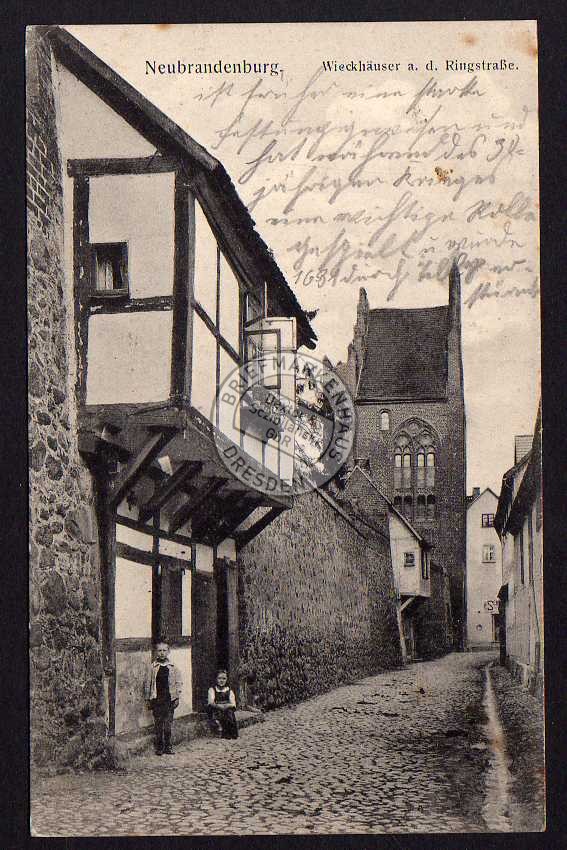 Neubrandenburg. Wieckhäuser a. d. Ringstraße.
ist früher eine starke
Festung gewesen und
hat während des 30-
jährigen Krieges
eine wichtige Rolle
gespielt u. wurde
1631 durch Tilly er-
stürmt
BRIEFMARKENHAUS
& Schüller
GbR
DRESDEN